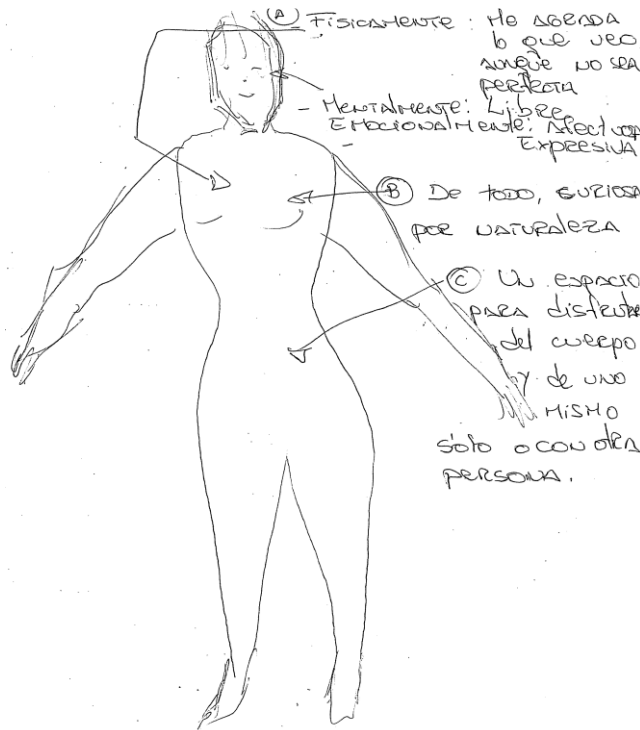 A FÍSICAMENTE: ME AGRADA
lo que veo
AUNQUE NO SEA
PERFECTA
- MENTALMENTE: LIBRE
EMOCIONALMENTE: AFECTIVA
- EXPRESIVA
B De todo, CURIOSA
POR NATURALEZA
C UN espacio
PARA disfrutar
del cuerpo
y de uno
MISMO
sólo o con otra
PERSONA.